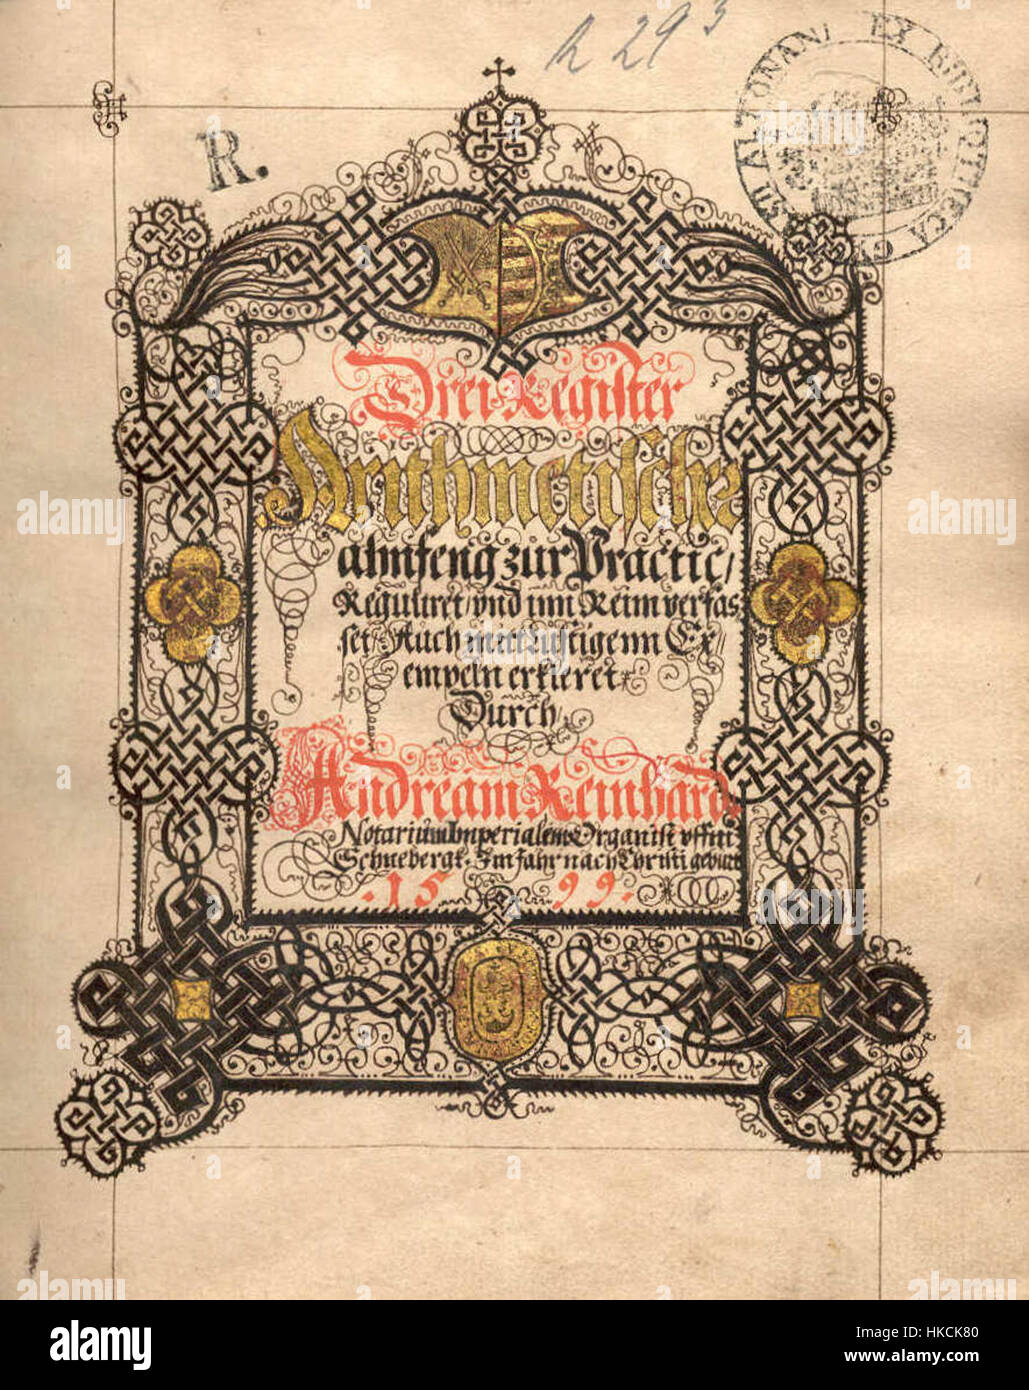 h 293
EX BIBLIOTHECA GYMNASII ALTONANI
R.
Drei Register
Arithmetischer
ahnfeng zur Practic/
Reguliret/ vnd inn Reim verfas
set/ Auch mitt lustigenn Ex/
empeln erkleret
Durch/
Andream Reinhard.
Notarium Imperialem Organist vffm
Schneebergk. Im Jahr nach Christi geburt
.1599.
alamy
Image ID: HKCK80
www.alamy.com